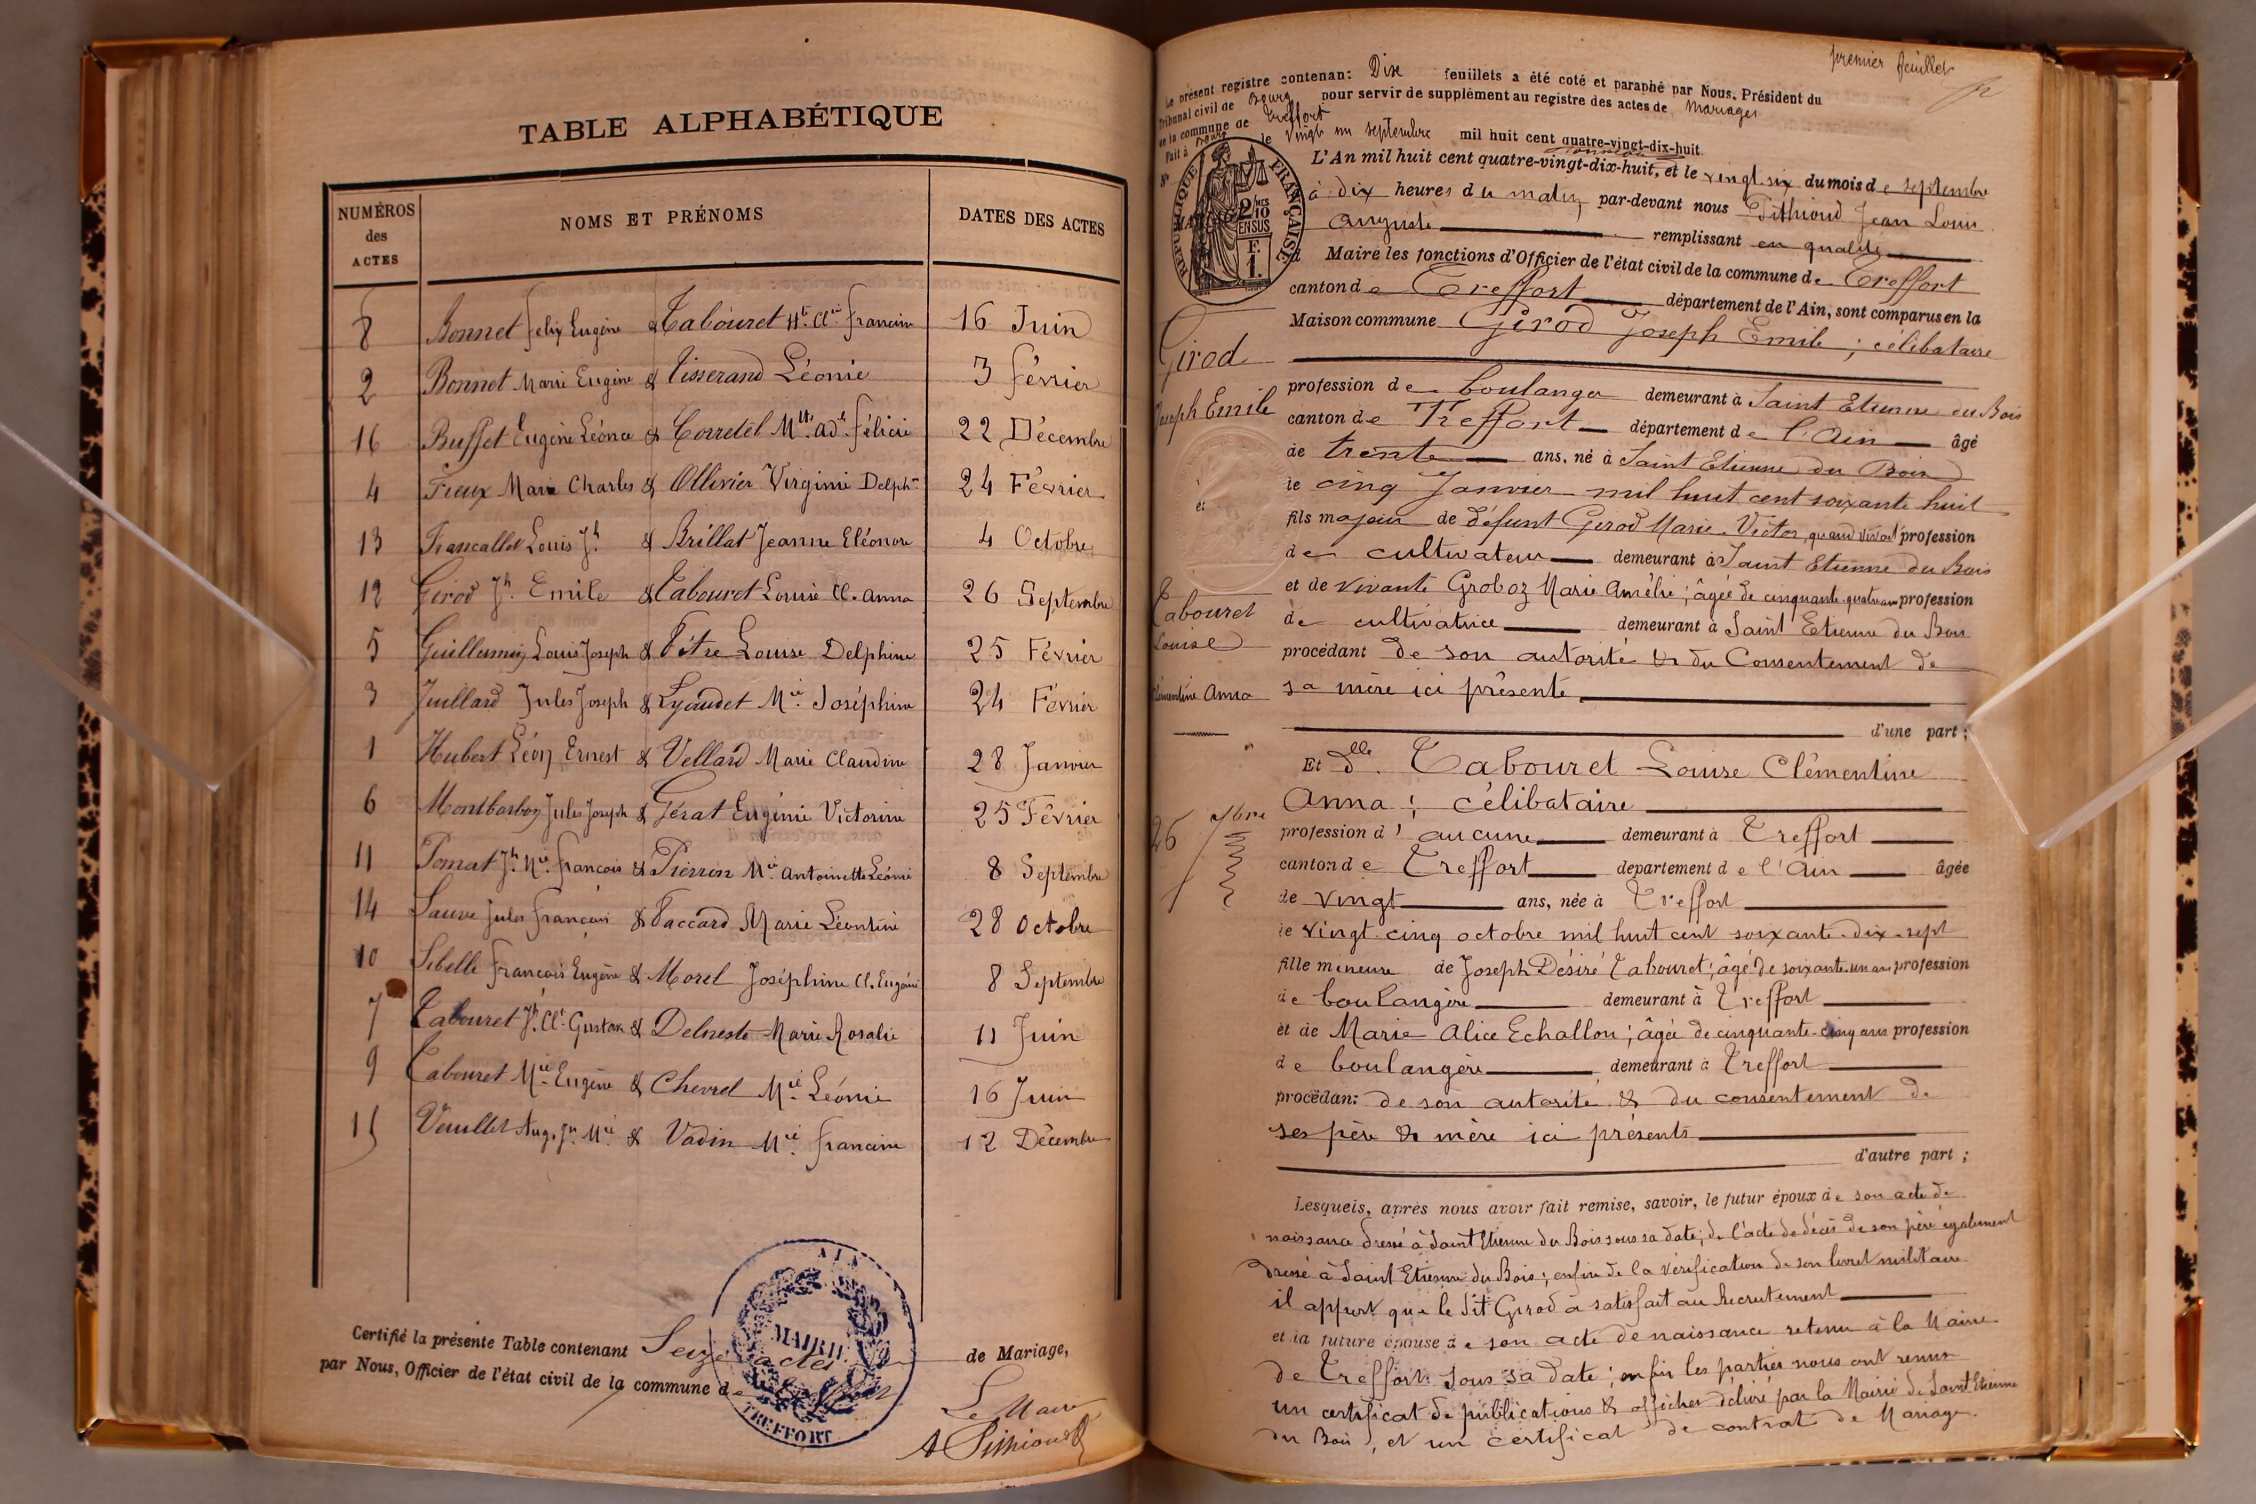 TABLE ALPHABÉTIQUE
NUMÉROS des ACTES
NOMS ET PRÉNOMS
DATES DES ACTES
8 Bonnet Felix Eugène & Tabouret Francine 16 Juin
2 Bonnet Marie Eugène & Tisserand Léonie 3 février
16 Buffet Eugène Léonce & Corretel félicie 22 Décembre
4 Fieux Marie Charles & Ollivier Virginie Delph.ne 24 Février
13 Francallet Louis Jh & Brillat Jeanne Eléonore 4 Octobre
12 Girod Jh Emile & Tabouret Louise Cl. Anna 26 Septembre
5 Guillermin Louis Joseph & Pètre Louise Delphine 25 Février
3 Juillard Jules Joseph & Lyaudet Mie Joséphine 24 Février
1 Hubert Léon Ernest & Vellard Marie Claudine 28 Janvier
6 Montbarbon Jules Joseph & Gérat Eugénie Victorine 25 Février
11 Pomat Jh Mie françois & Pierron Mie Antoinette Léonie 8 Septembre
14 Sauve Jules françois & Paccard Marie Léontine 28 Octobre
10 Sibelle françois Eugène & Morel Joséphine Cl. Eugénie 8 Septembre
7 Tabouret Jh Clt Gustave & Marie Rosalie 11 Juin
9 Tabouret Mie Eugène & Chevrel Mie Léonie 16 Juin
15 Vuillet Aug. Jh Mie & Vadin Mie francine 12 Décembre
Certifié la présente Table contenant Seize actes de Mariage,
par Nous, Officier de l'état civil de la commune de Treffort
AIN
MAIRIE
TREFFORT
Le Maire
A Pithioud
premier feuillet
Le présent registre contenant Dix feuillets a été coté et paraphé par Nous, Président du
Tribunal civil de Bourg pour servir de supplément au registre des actes de Mariages
de la commune de Treffort
Fait à Bourg le Vingt un septembre mil huit cent quatre-vingt-dix-huit
RÉPUBLIQUE FRANÇAISE
2/10 EN SUS
F. 1.
N°
L'An mil huit cent quatre-vingt-dix-huit, et le vingt six du mois de septembre
à dix heures du matin par-devant nous Pithioud Jean Louis
Auguste remplissant en qualité
Maire les fonctions d'Officier de l'état civil de la commune de Treffort
canton de Treffort département de l'Ain, sont comparus en la
Maison commune Girod Joseph Emile ; célibataire
Girod
Joseph Emile
et
Tabouret
Louise
Clémentine Anna
26 7bre
profession de boulanger demeurant à Saint Etienne du Bois
canton de Treffort département de l'Ain âgé
de trente ans, né à Saint Etienne du Bois
le cinq Janvier mil huit cent soixante huit
fils majeur de défunt Girod Marie Victor, quand vivait profession
de cultivateur demeurant à Saint Etienne du Bois
et de vivante Groboz Marie Amélie ; âgée de cinquante quatre ans profession
de cultivatrice demeurant à Saint Etienne du Bois
procédant de son autorité & du Consentement de
sa mère ici présente
d'une part ;
Et dlle Tabouret Louise Clémentine
Anna ; célibataire
profession d'aucune demeurant à Treffort
canton de Treffort département de l'Ain âgée
de vingt ans, née à Treffort
le vingt cinq octobre mil huit cent soixante-dix-sept
fille mineure de Joseph Désiré Tabouret ; âgé de soixante un ans profession
de boulangère demeurant à Treffort
et de Marie Alice Echallon ; âgée de cinquante-cinq ans profession
de boulangère demeurant à Treffort
procédant de son autorité & du consentement de
ses père & mère ici présents
d'autre part ;
Lesquels, après nous avoir fait remise, savoir, le futur époux de son acte de
naissance dressé à Saint Etienne du Bois sous sa date ; de l'acte de décès de son père également
dressé à Saint Etienne du Bois ; enfin de la vérification de son livret militaire
il appert que le dit Girod a satisfait au Recrutement
et la future épouse de son acte de naissance retenu à la Mairie
de Treffort sous sa date ; enfin les parties nous ont remis
un certificat de publications & affiches délivré par la Mairie de Saint Etienne
du Bois, et un certificat de contrat de Mariage.